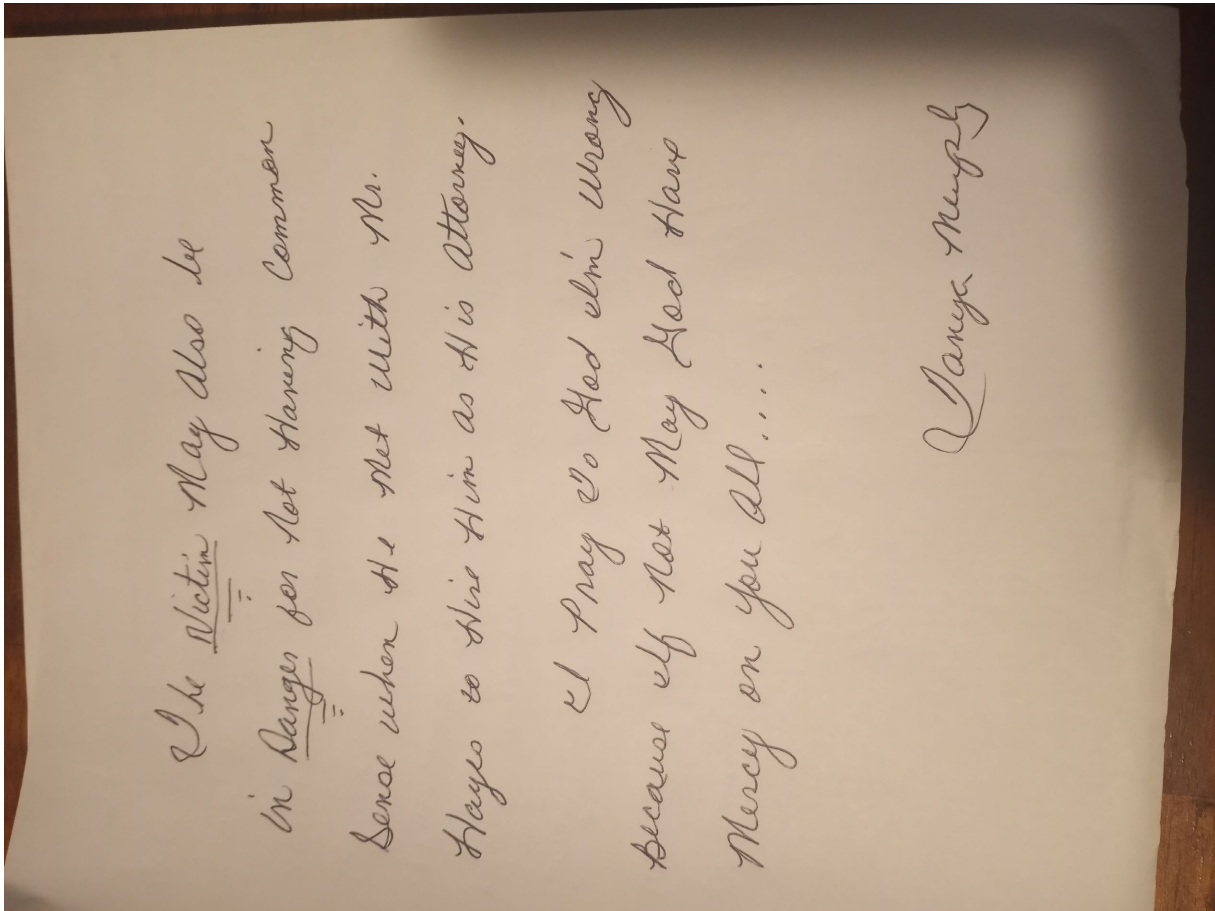 The Victim May Also be
in Danger for Not Having Common
Sense when He Met With Mr.
Hayes to Hire Him as His Attorney.
I Pray To God I'm Wrong
Because If Not May God Have
Mercy on You All....
Tanya Murphy